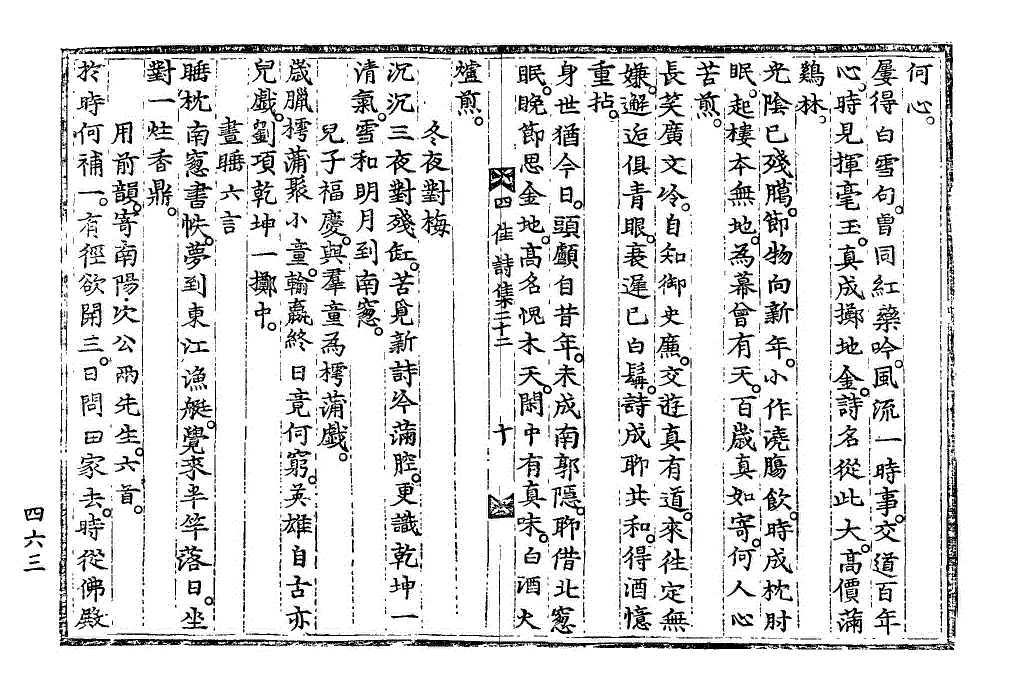 何心。
屢得白雪句。曾同紅藥吟。風流一時事。交道百年
心。時見揮毫玉。真成擲地金。詩名從此大。高價滿
鷄林。
光陰已殘臈。節物向新年。小作澆腸飲。時成枕肘
眠。起樓本無地。為幕會有天。百歲真如寄。何人心
苦煎。
長笑廣文冷。自知御史廉。交遊真有道。來往定無
嫌。邂逅俱青眼。衰遲已白鬚。詩成聊共和。得酒憶
重拈。
身世猶今日。頭顱自昔年。未成南郭隱。聊借北窓
眠。晚節思金地。高名愧木天。閑中有真味。白酒火
四佳詩集二十二 十
爐煎。
冬夜對梅
沉沉三夜對殘缸。苦覓新詩吟滿腔。更識乾坤一
清氣。雪和明月到南窓。
兒子福慶。與羣童為樗蒲戲。
歲臘樗蒲聚小童。輸贏終日竟何窮。英雄自古亦
兒戲。劉項乾坤一擲中。
晝睡六言
睡枕南窓書帙。夢到東江漁艇。覺來半竿落日。坐
對一炷香鼎。
用前韻。寄南陽次公兩先生。六首。
於時何補一。有徑欲開三。日問田家去。時從佛殿
四六三